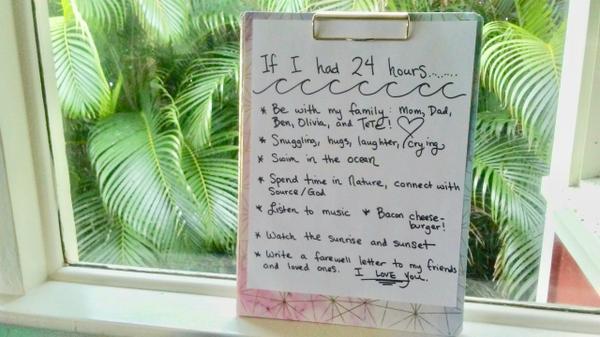 If I had 24 hours........
* Be with my family: Mom, Dad,
Ben, Olivia, and TeTe!
* Snuggling, hugs, laughter, crying
* Swim in the ocean
* Spend time in Nature, connect with
Source/God
* Listen to music * Bacon cheese-
burger!
* Watch the sunrise and sunset
* Write a farewell letter to my friends
and loved ones. I LOVE You.